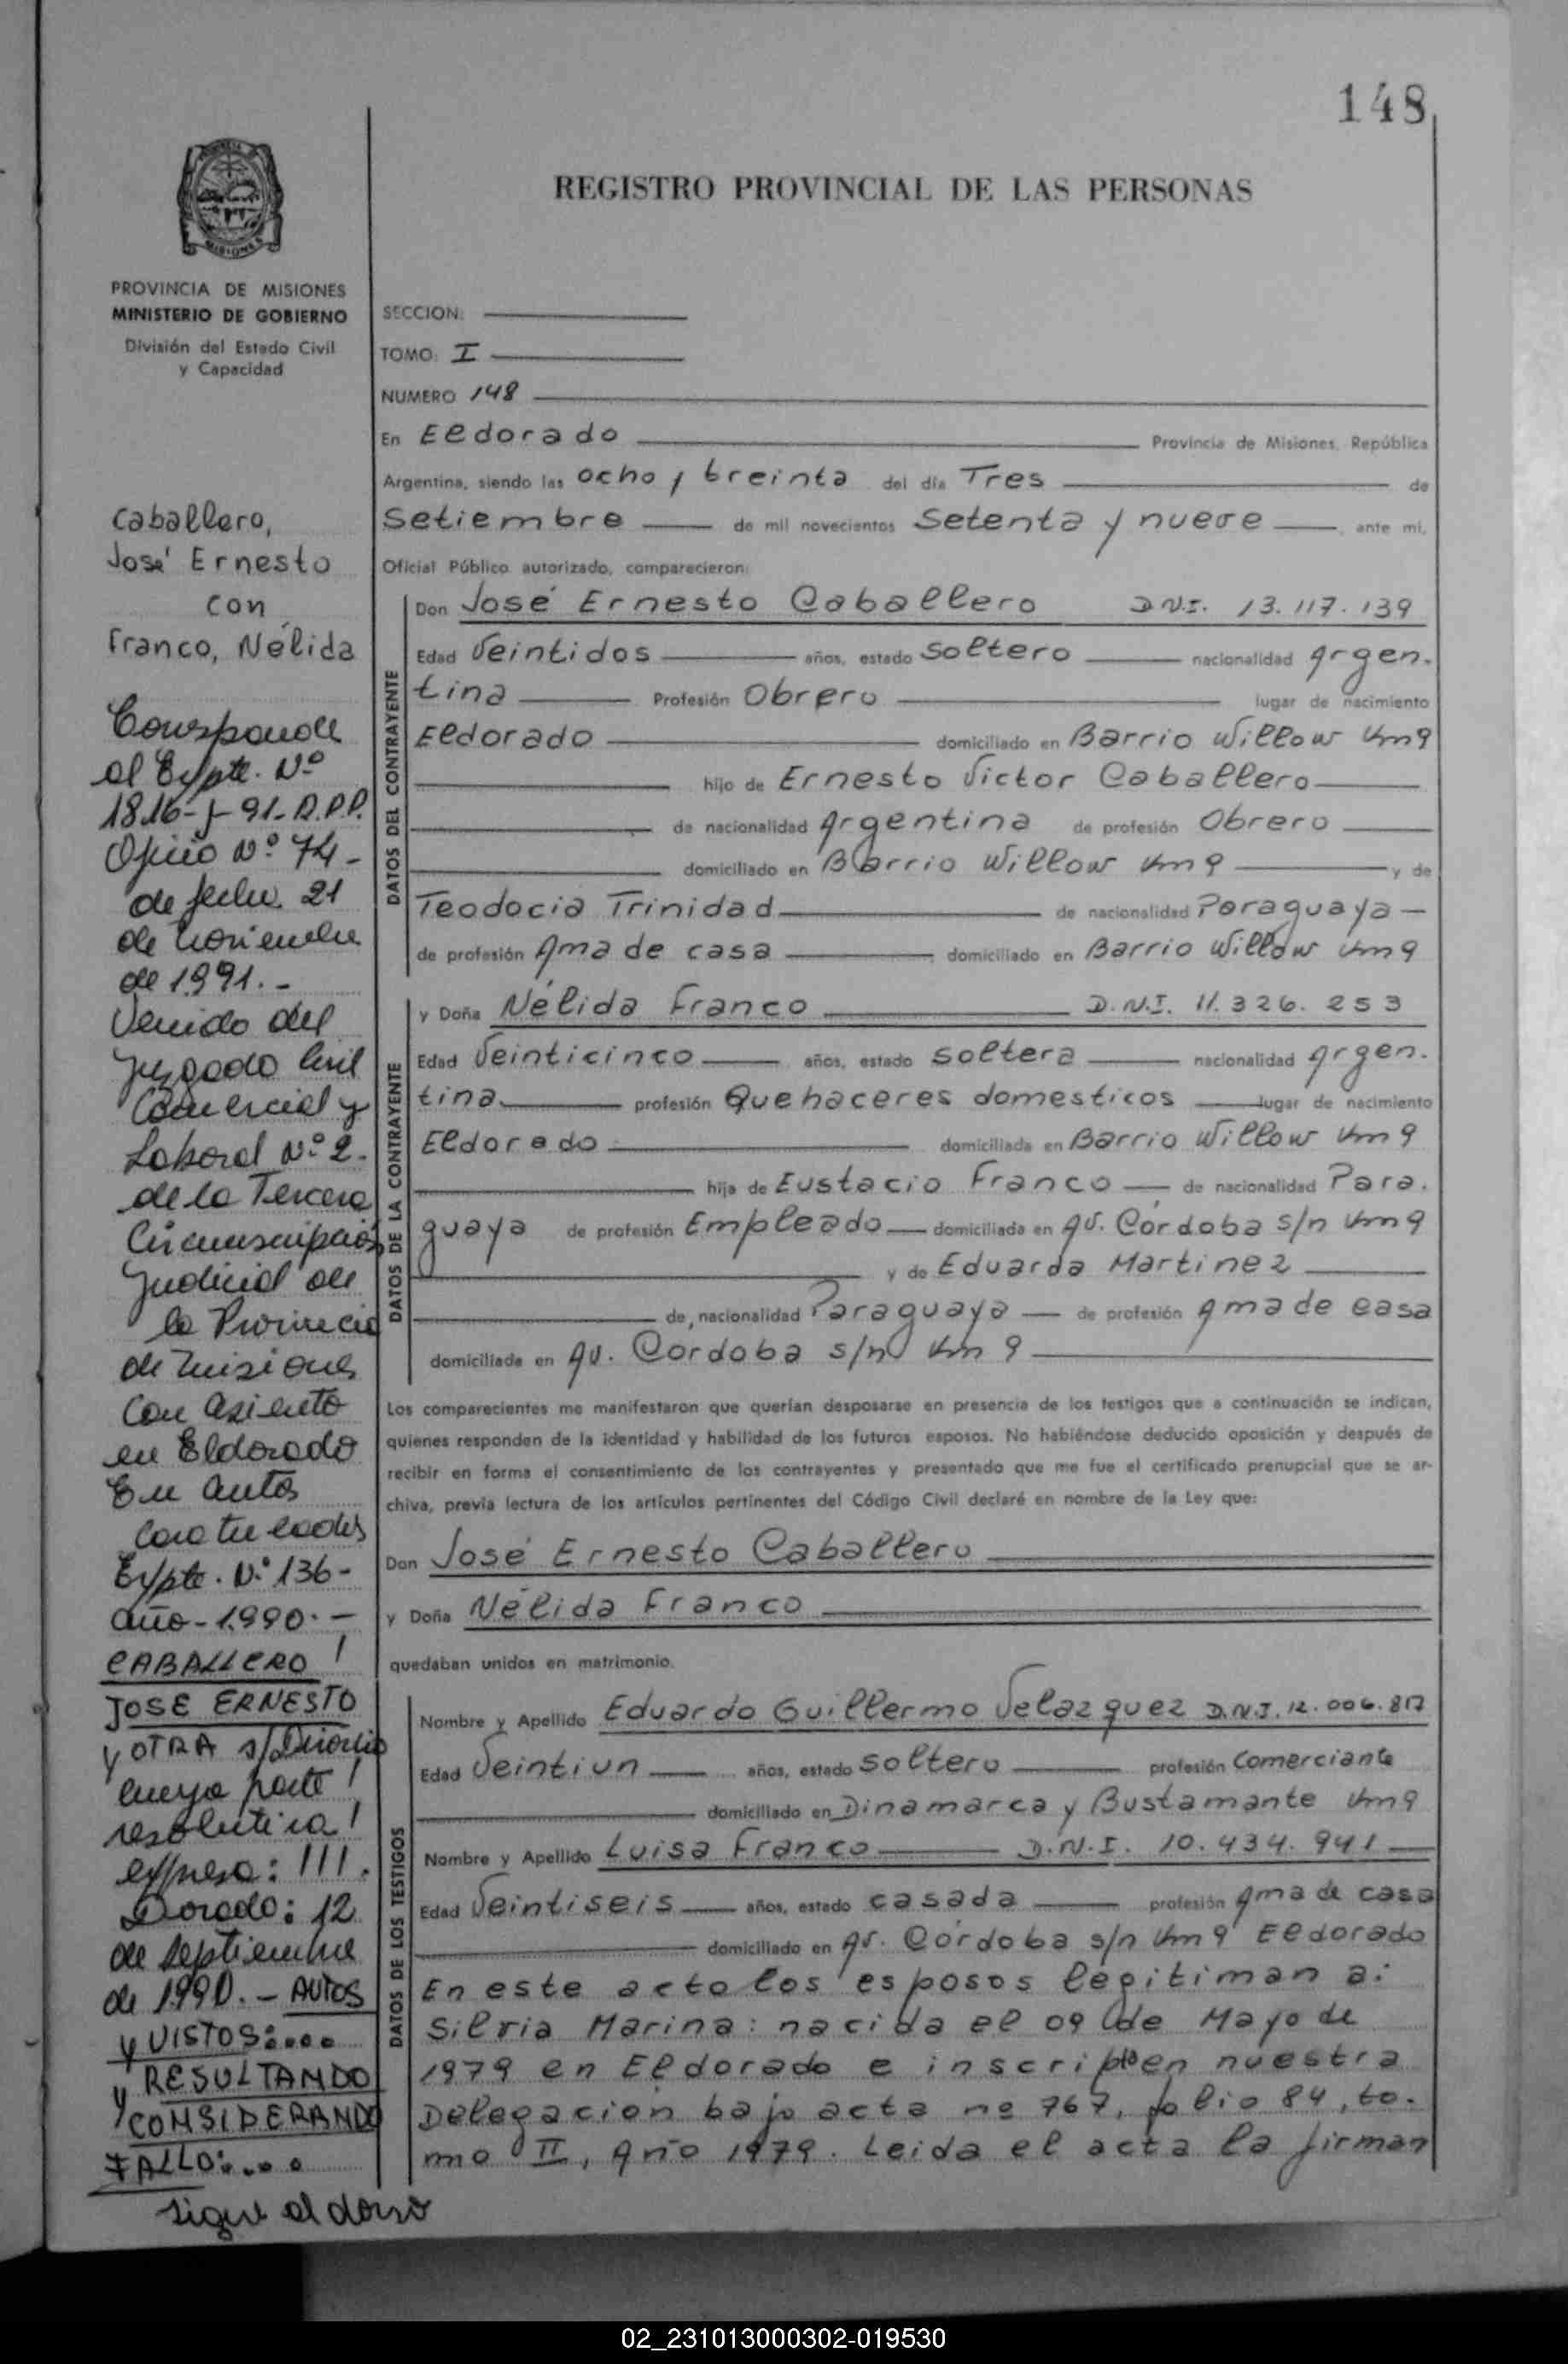 148
REGISTRO PROVINCIAL DE LAS PERSONAS
MISIONES
PROVINCIA DE MISIONES
MINISTERIO DE GOBIERNO
División del Estado Civil
y Capacidad
Caballero,
José Ernesto
con
Franco, Nélida
Corresponde
al Expte. Nº
1816-J-91-R.P.P.
Oficio Nº 74-
de fecha 21
de noviembre
de 1991.-
Venido del
Juzgado Civil
Comercial y
Laboral Nº 2.
de la Tercera
Circunscripción
Judicial de
la Provincia
de Misiones
con asiento
en Eldorado
En autos
caratulados
Expte. Nº 136-
año-1990.-
CABALLERO
JOSE ERNESTO
y OTRA s/Divorcio
cuya parte
resolutiva
expresa: ///.
Dorado: 12
de septiembre
de 1990.- AUTOS
y VISTOS:...
y RESULTANDO
y CONSIDERANDO
FALLO:...
sigue al dorso
SECCION:
TOMO: I
NUMERO 148
En Eldorado Provincia de Misiones, República
Argentina, siendo las ocho y treinta del día Tres de
Setiembre de mil novecientos Setenta y nueve ante mi,
Oficial Público autorizado, comparecieron:
DATOS DEL CONTRAYENTE
Don José Ernesto Caballero D.N.I. 13.117.139
Edad Veintidos años, estado Soltero nacionalidad Argen.
tina Profesión Obrero lugar de nacimiento
Eldorado domiciliado en Barrio Willow Km 9
hijo de Ernesto Victor Caballero
de nacionalidad Argentina de profesión Obrero
domiciliado en Barrio Willow Km 9 y de
Teodocia Trinidad de nacionalidad Paraguaya
de profesión Ama de casa domiciliado en Barrio Willow Km 9
DATOS DE LA CONTRAYENTE
y Doña Nélida Franco D.N.I. 11.326.253
Edad Veinticinco años, estado Soltera nacionalidad Argen.
tina profesión Quehaceres domesticos lugar de nacimiento
Eldorado domiciliada en Barrio Willow Km 9
hija de Eustacio Franco de nacionalidad Para.
guaya de profesión Empleado domiciliada en Av. Córdoba s/n Km 9
y de Eduarda Martinez
de nacionalidad Paraguaya de profesión Ama de casa
domiciliada en Av. Cordoba s/n Km 9
Los comparecientes me manifestaron que querían desposarse en presencia de los testigos que a continuación se indican,
quienes responden de la identidad y habilidad de los futuros esposos. No habiéndose deducido oposición y después de
recibir en forma el consentimiento de los contrayentes y presentado que me fue el certificado prenupcial que se ar-
chiva, previa lectura de los artículos pertinentes del Código Civil declaré en nombre de la Ley que:
Don José Ernesto Caballero
y Doña Nélida Franco
quedaban unidos en matrimonio.
DATOS DE LOS TESTIGOS
Nombre y Apellido Eduardo Guillermo Velazquez D.N.I. 12.006.817
Edad Veintiun años, estado Soltero profesión Comerciante
domiciliado en Dinamarca y Bustamante Km 9
Nombre y Apellido Luisa Franco D.N.I. 10.434.941
Edad Veintiseis años, estado casada profesión Ama de casa
domiciliado en Av. Córdoba s/n Km 9 Eldorado
En este acto los esposos legitiman a:
Silvia Marina: nacida el 09 de Mayo de
1979 en Eldorado e inscripta en nuestra
Delegación bajo acta nº 767, folio 84, to.
mo II, Año 1979. Leida el acta la firman
02_231013000302-019530